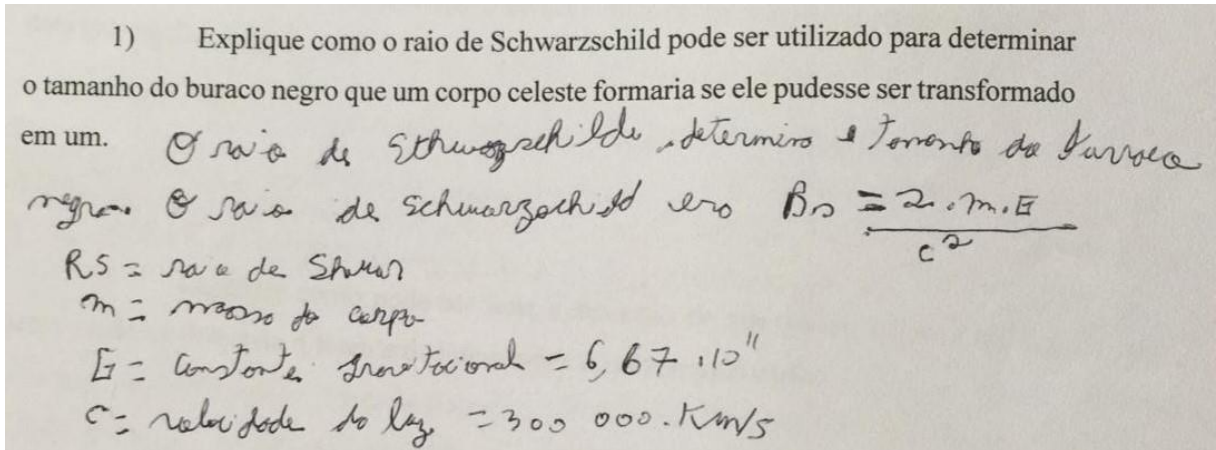 1) Explique como o raio de Schwarzschild pode ser utilizado para determinar
o tamanho do buraco negro que um corpo celeste formaria se ele pudesse ser transformado
em um. O raio de determina o tamanho do
negro. O raio de Schwarzschild era Rs = 2.m.G
c²
RS = raio de
m = massa do corpo
G = constante gravitacional = 6,67.10¹¹
C = velocidade da luz = 300 000. Km/s